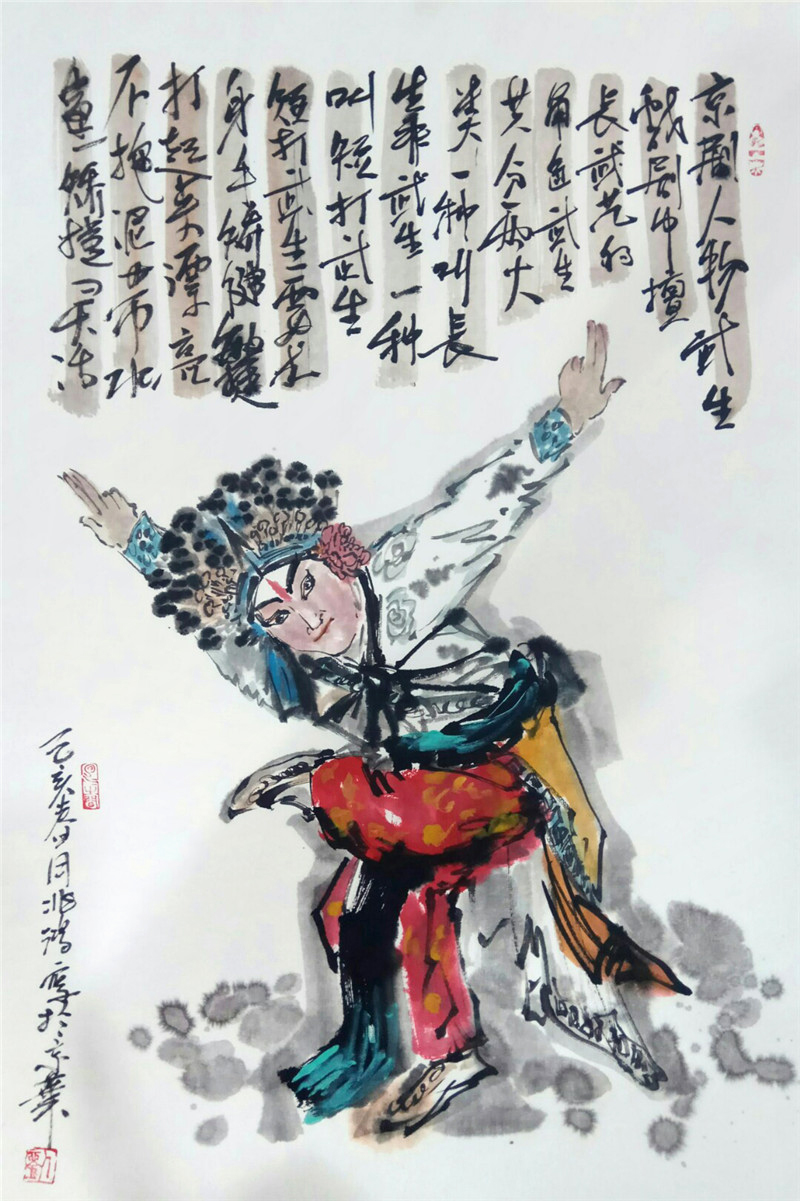 京剧人物武生
戏剧中擅
长武艺的
角色武生
共分两大
类一种叫长
靠武生一种
叫短打武生
短打武生要求
身手矫健敏捷
打起来漂亮
不拖泥带水
矫捷灵活
己亥春月兆鸿写於京華